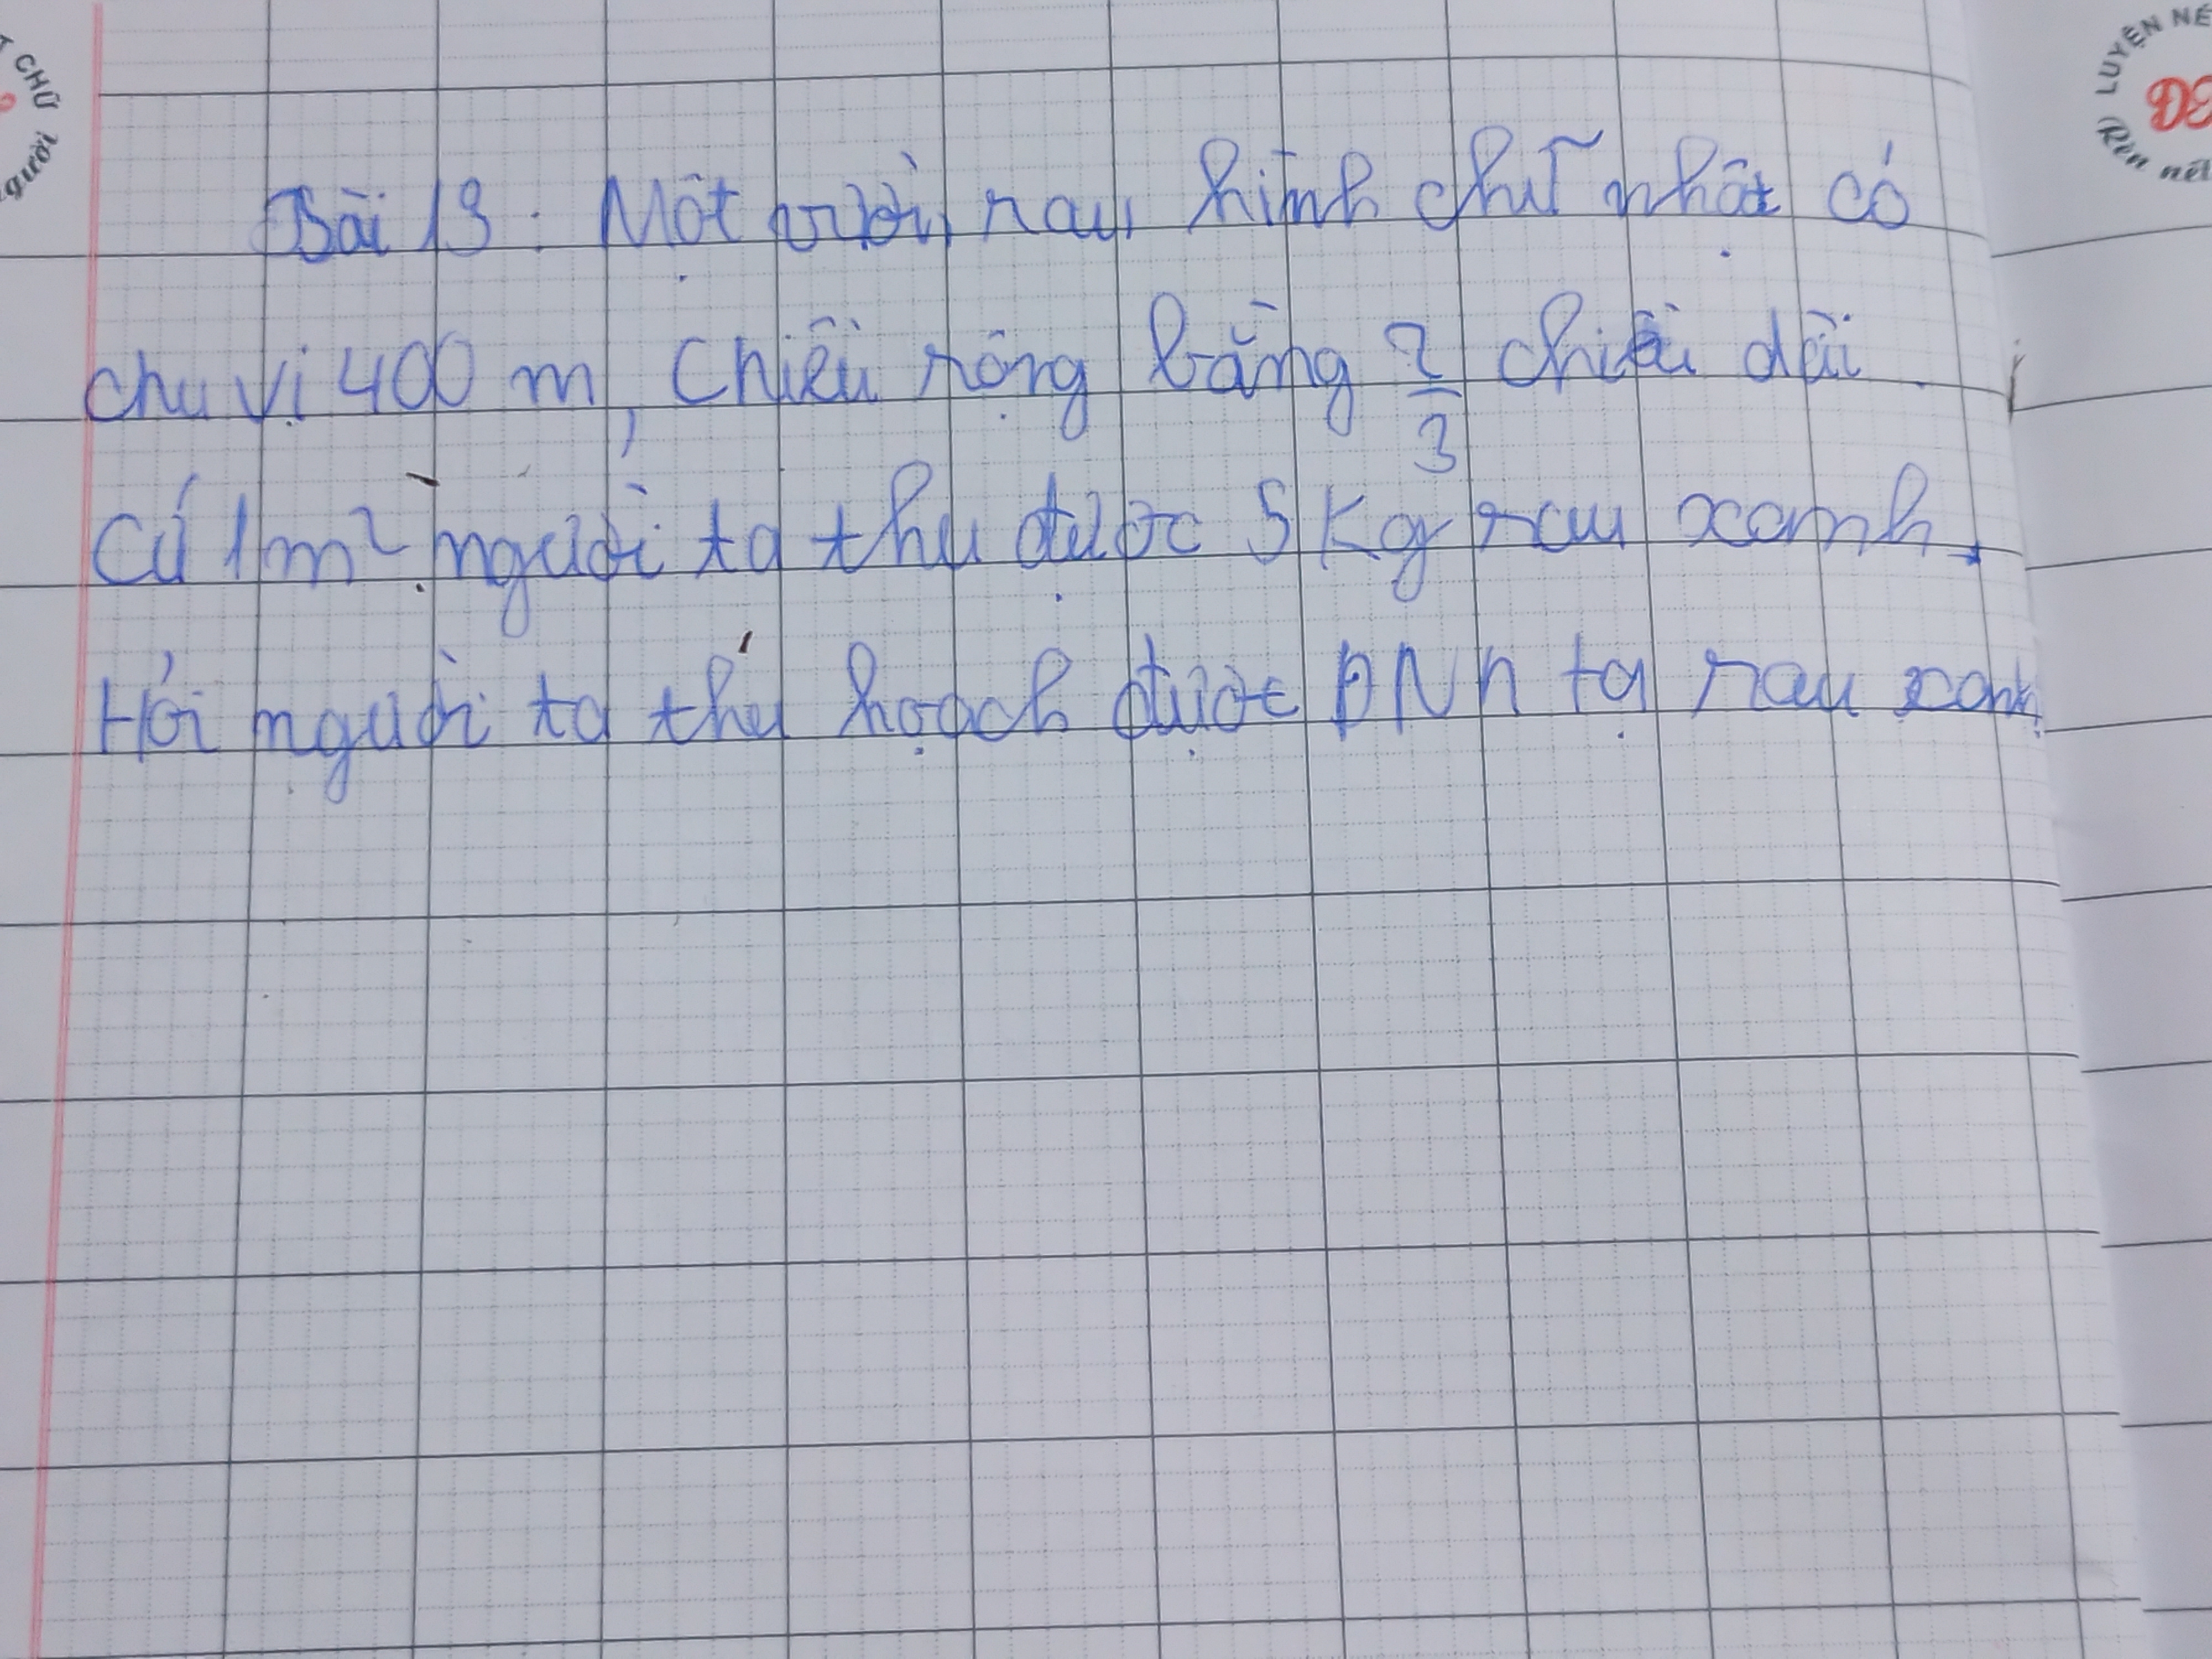 CHỮ
gười
LUYỆN NÉ
ĐẸ
Rèn nết
Bài 13: Một vườn rau hình chữ nhật có
chu vi 400 m, chiều rộng bằng 2/3 chiều dài.
Cứ 1m² người ta thu được 5 Kg rau xanh.
Hỏi người ta thu hoạch được BNh tạ rau xanh.